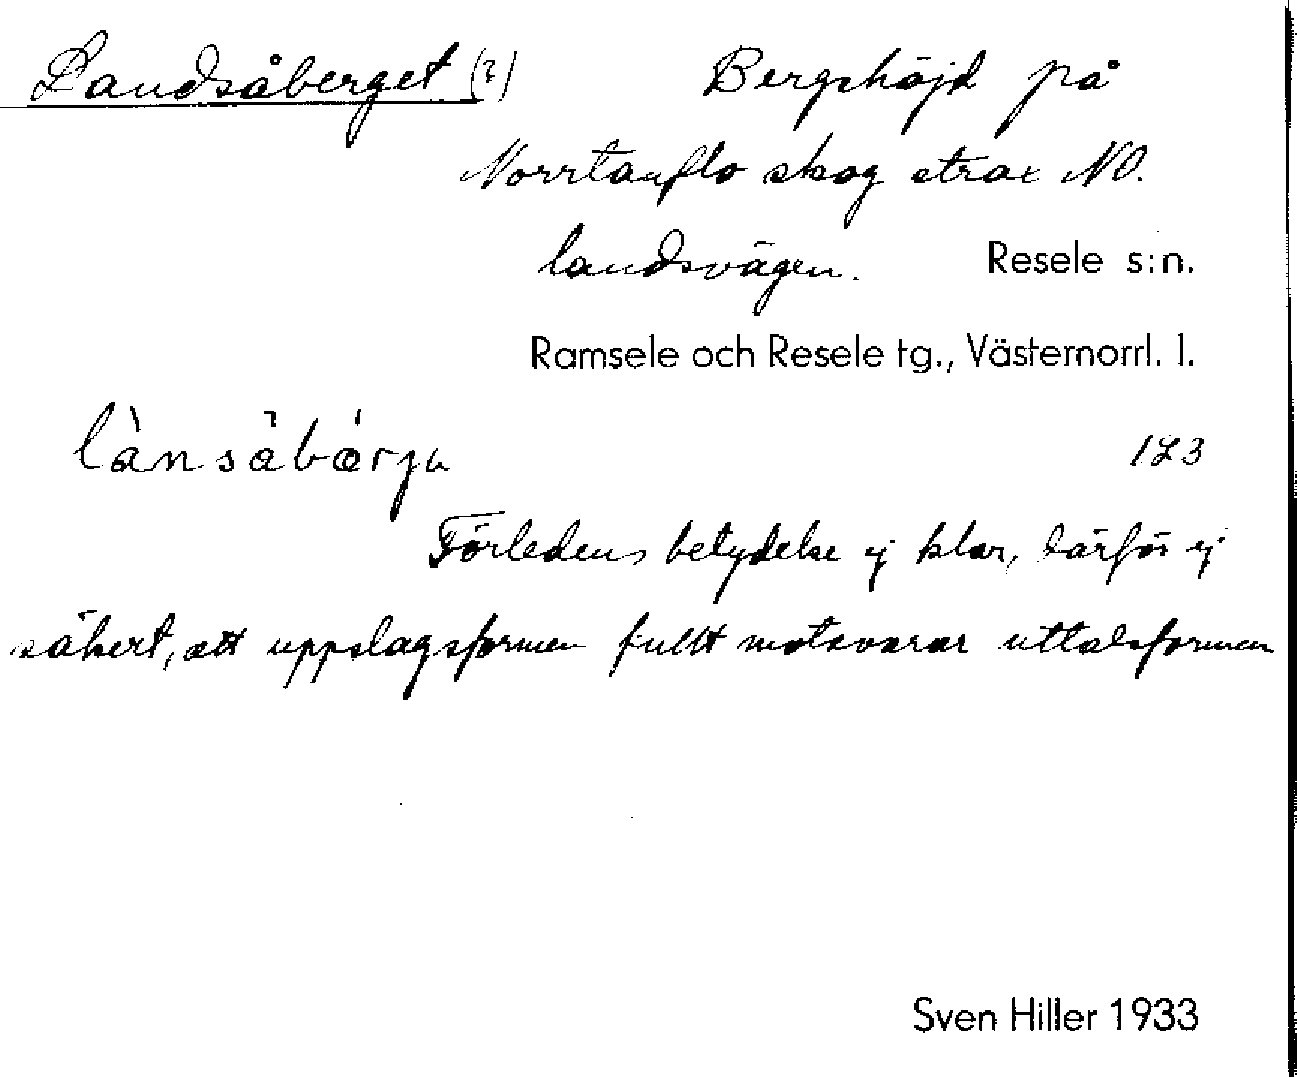 Landsåberget (?) Bergshöjd på
Norrtanflo skog strax NO.
landsvägen. Resele s:n.
Ramsele och Resele tg., Västernorrl. l.
lànsåbárjɯ 123
Förledens betydelse ej klar, därför ej
säkert, att uppslagsformen fullt motsvarar uttalsformen
Sven Hiller 1933